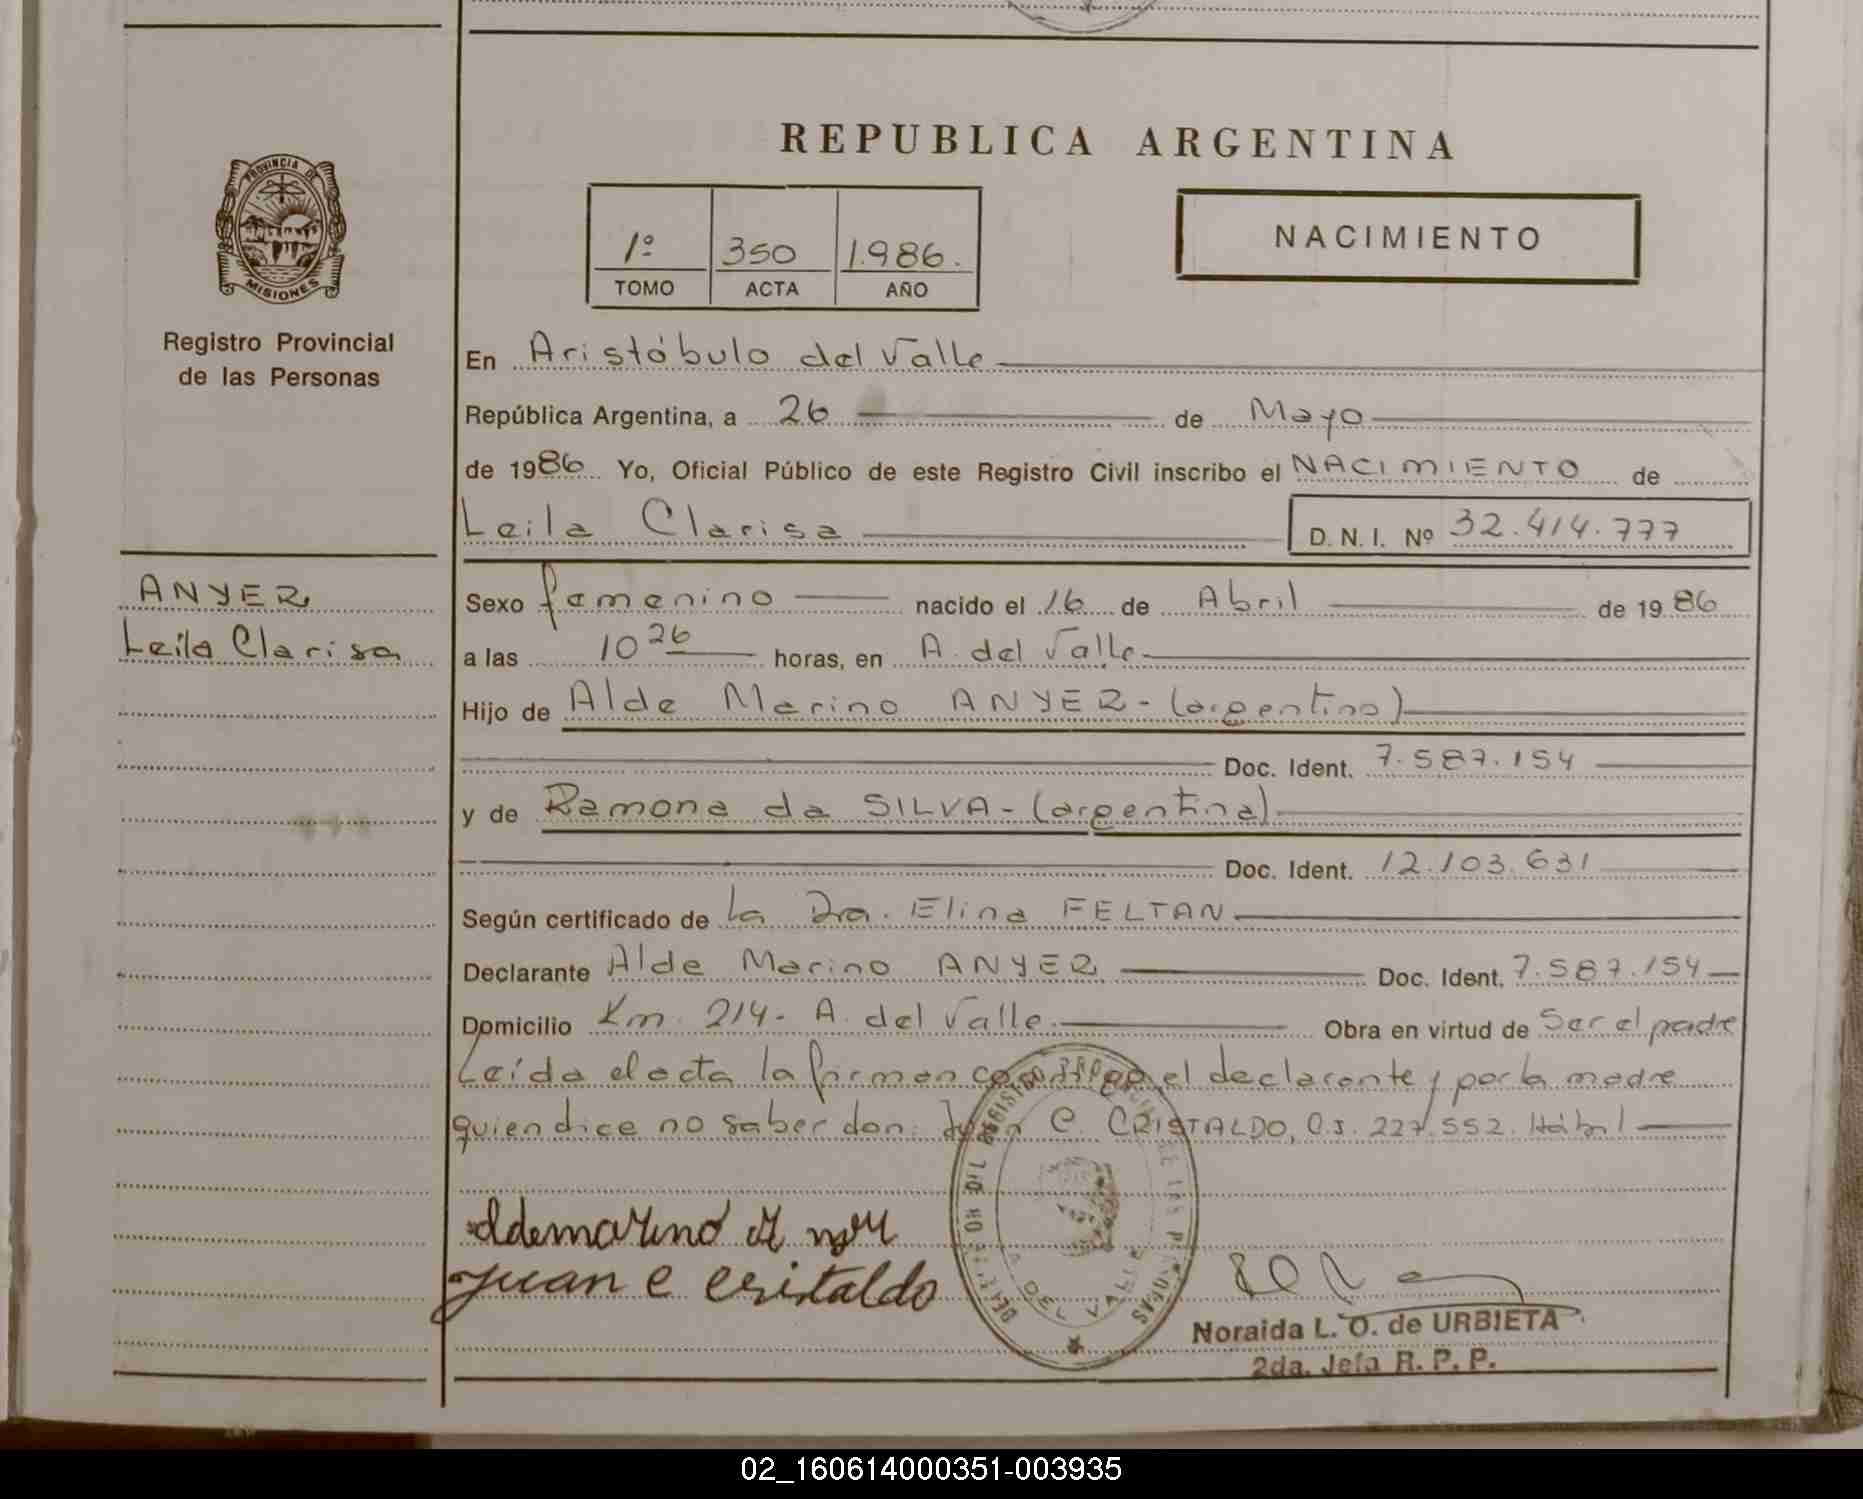 REPUBLICA ARGENTINA
PROVINCIA DE
MISIONES
Registro Provincial
de las Personas
1º 350 1.986.
TOMO ACTA AÑO
NACIMIENTO
En Aristóbulo del Valle
República Argentina, a 26 de Mayo
de 1986 Yo, Oficial Público de este Registro Civil inscribo el NACIMIENTO de
Leila Clarisa D. N. I. Nº 32.414.777
ANYER
Leila Clarisa
Sexo femenino nacido el 16 de Abril de 1986
a las 10 26 horas, en A. del Valle
Hijo de Alde Marino ANYER - (argentino)
Doc. Ident. 7.587.154
y de Ramona da SILVA - (argentina)
Doc. Ident. 12.103.631
Según certificado de la Dra. Elina FELTAN
Declarante Alde Marino ANYER Doc. Ident. 7.587.154
Domicilio Km. 214 - A. del Valle Obra en virtud de Ser el padre
Leída el acta la firman conmigo el declarante y por la madre
quien dice no saber don: Juan C. CRISTALDO, C.I. 227.552. Hábil
aldemarino
Juan C Cristaldo
A. DEL VALLE
Noraida L. O. de URBIETA
2da. Jefa R. P. P.
02_160614000351-003935